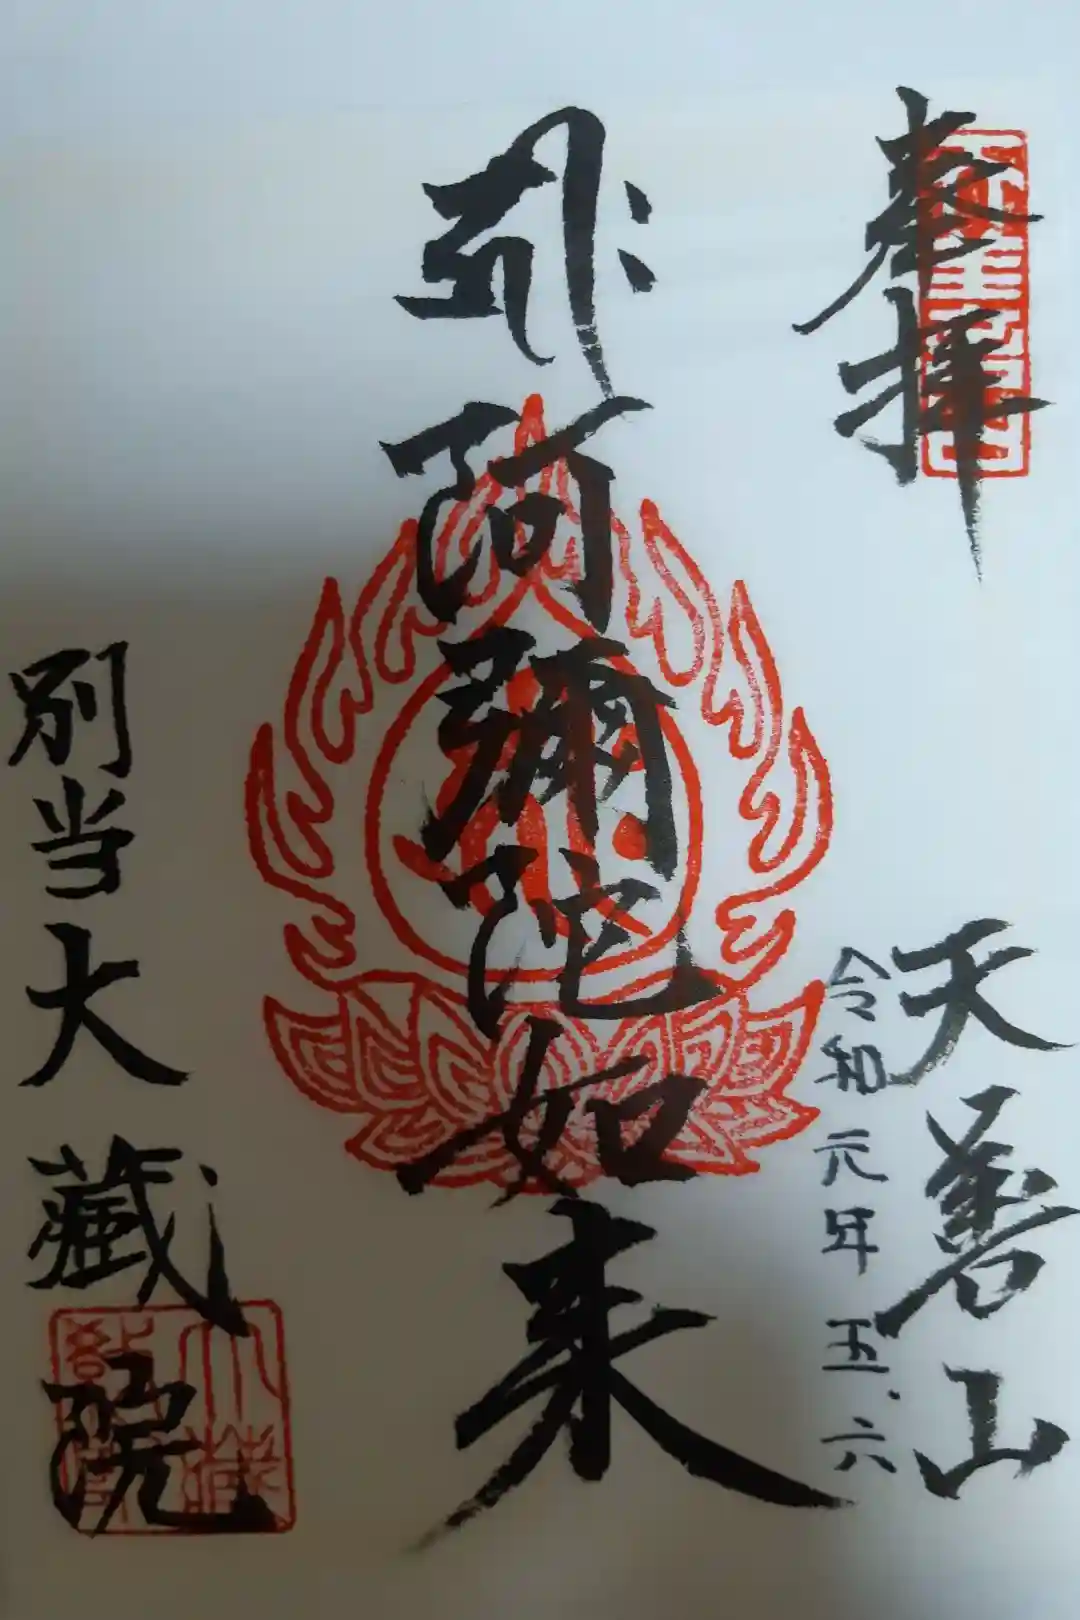 奉拝
天善山
令和元年五.六
𑖮𑖿𑖨𑖱𑖾
阿彌陀如来
別当大蔵院